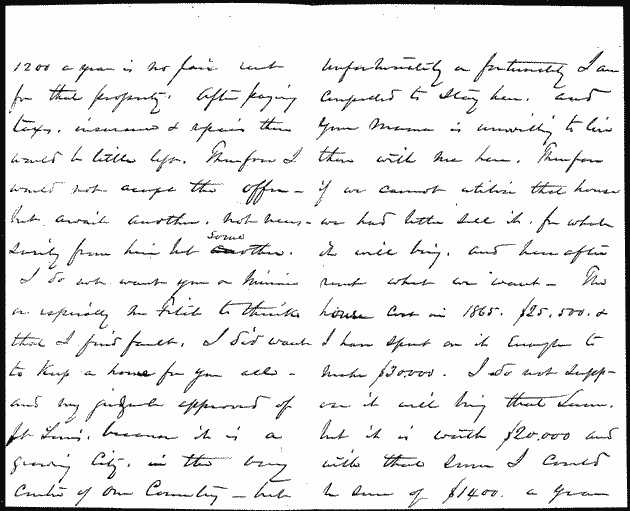 1200 a year is no fair rent
for that property. After paying
taxes, insurance & repairs there
would be little left. Therefore I
would not accept the offer –
but await another, not neces-
sarily from him but some other.
I do not want you or Minnie
or especially Mr Fitch to think
that I find fault. I did want
to keep a home for you all –
and my judgmt approved of
St Louis, because it is a
growing City, in the very
centre of our Country – but
unfortunately or fortunately I am
compelled to stay here, and
your Mama is unwilling to live
there with me here. Therefore
if we cannot utilize that house
we had better sell it, for what
it will bring, and hereafter
rent what we want – The
house cost in 1865, $25,500, &
I have spent on it enough to
make $30000. I do not supp-
ose it will bring that sum,
but it is worth $20,000 and
with that sum I could
be sure of $1400. a year